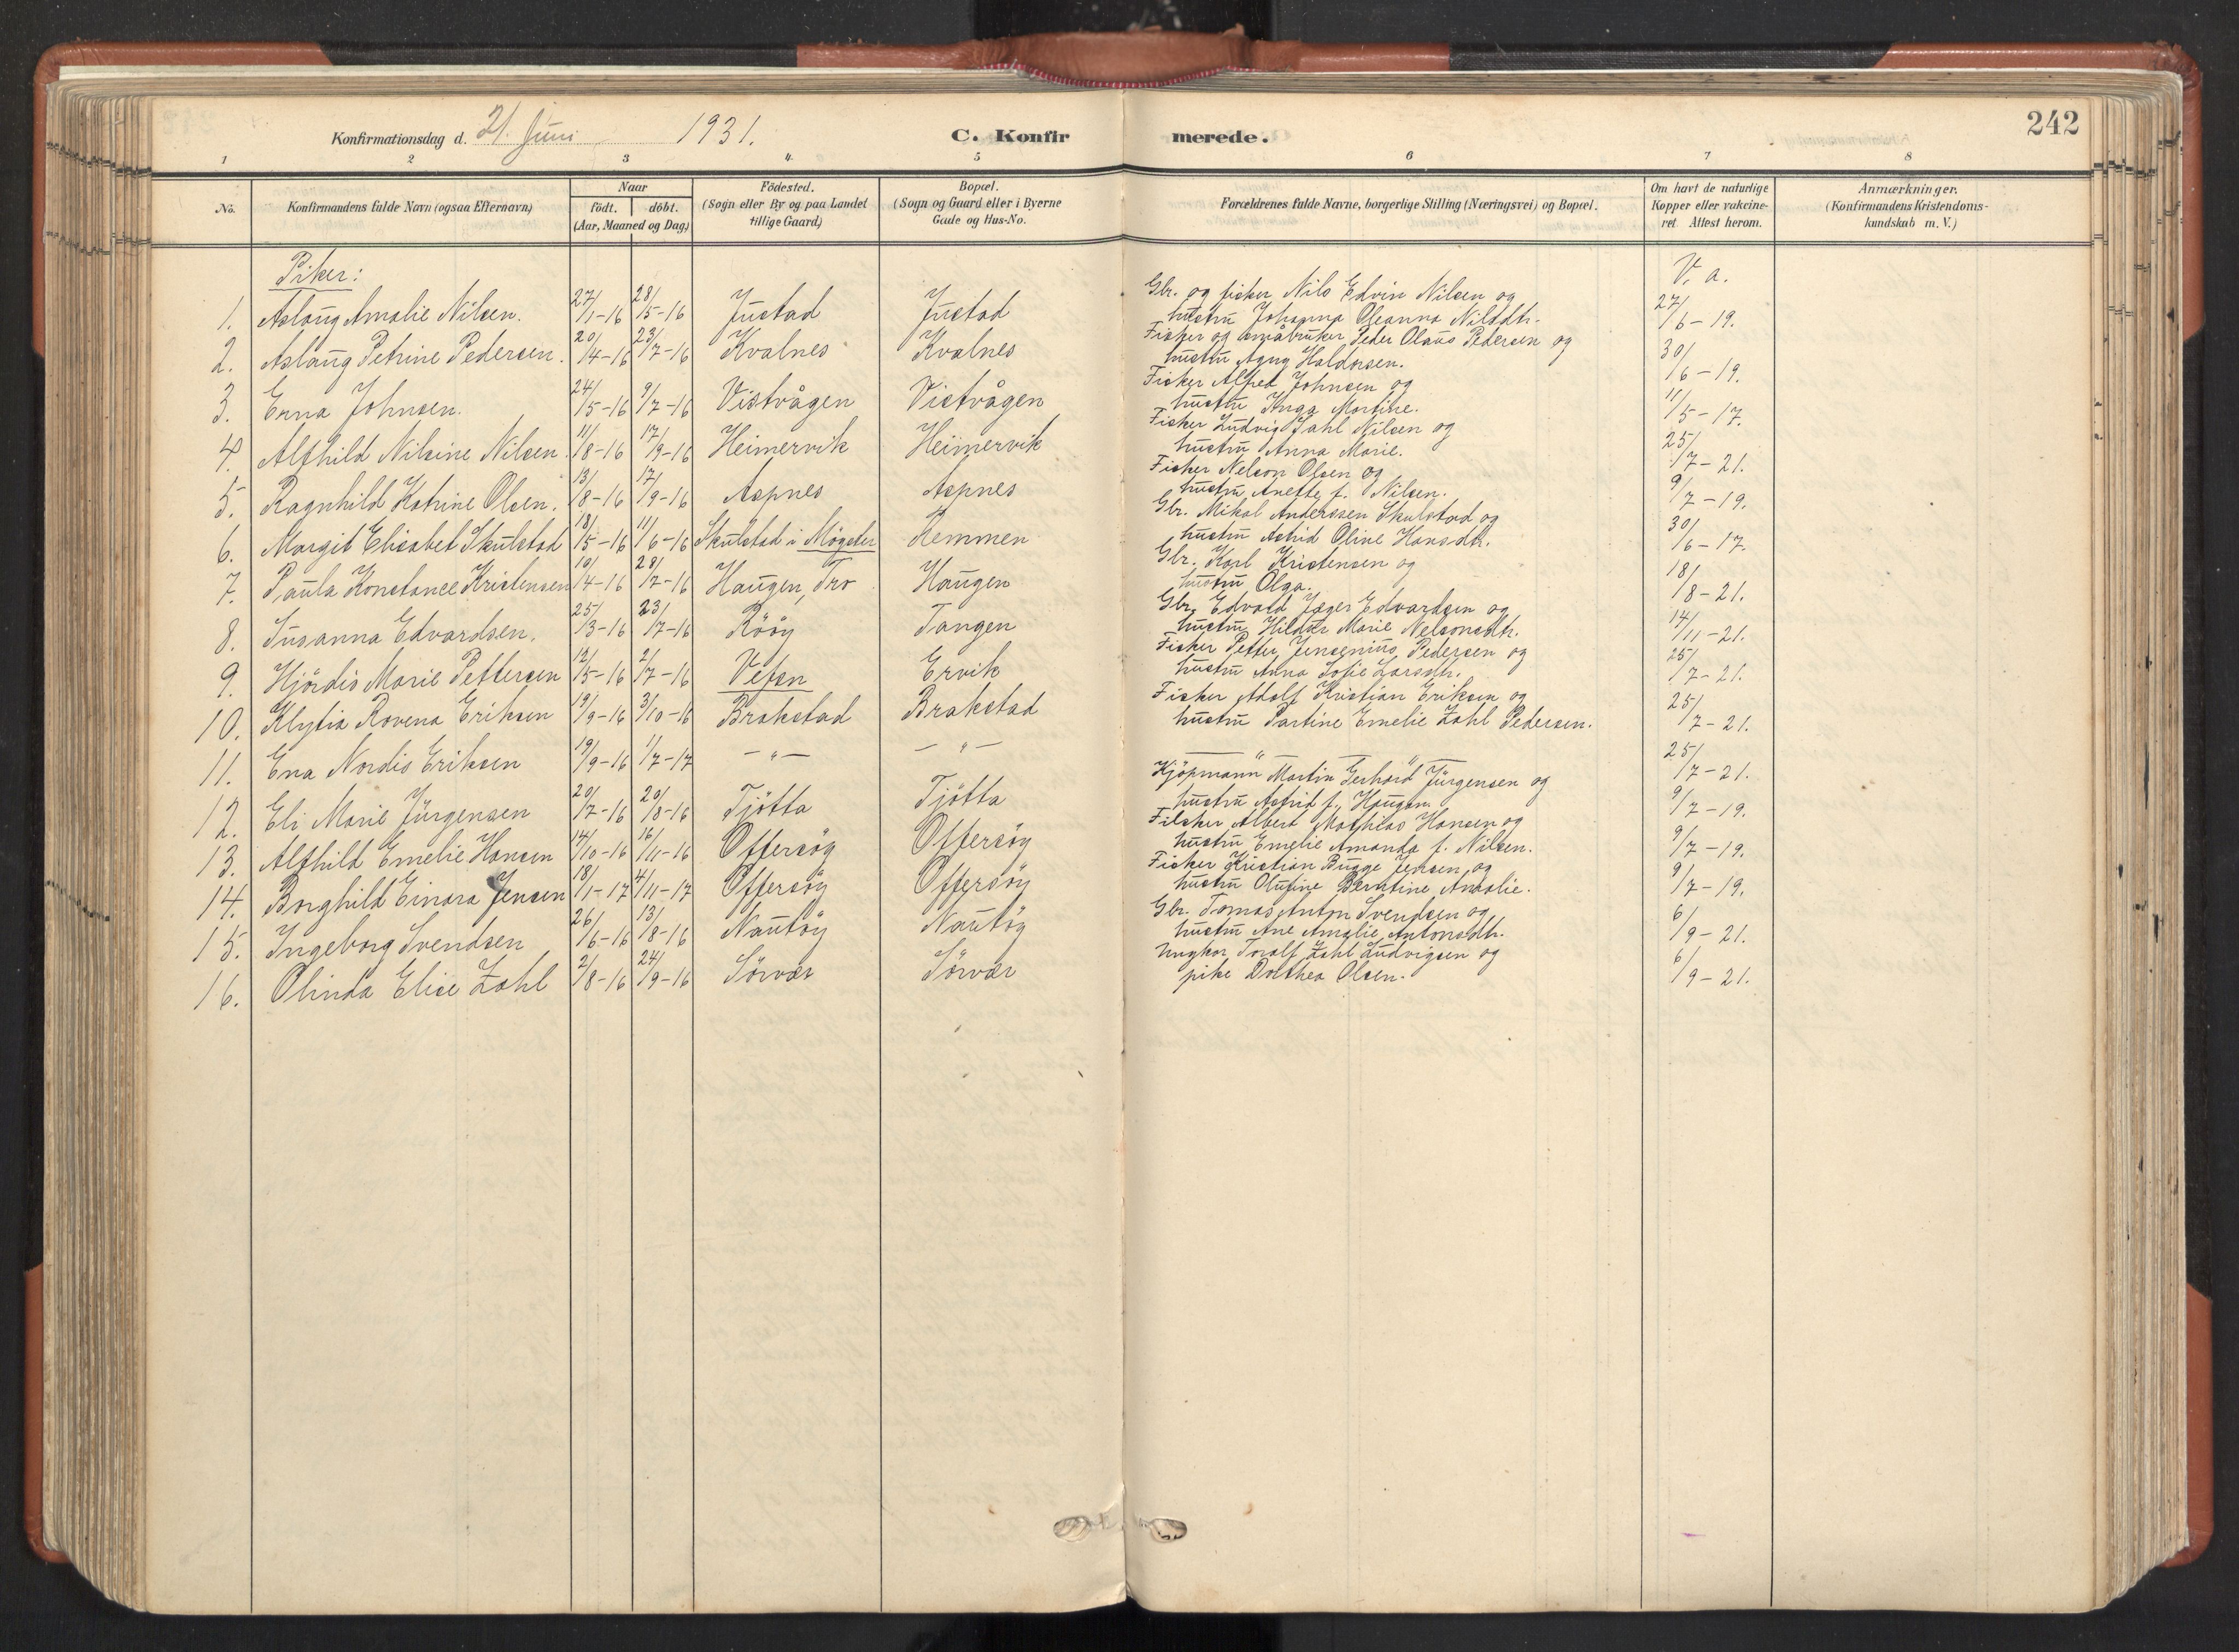 Konfirmationsdag d. 21. Juni 1931.
C. Konfirmerede.
242
1 2 3 4 5 6 7 8
No.
Konfirmandens fulde Navn (ogsaa Efternavn)
Naar
födt. döbt.
(Aar, Maaned og Dag)
Födested.
(Sogn eller By og paa Landet
tillige Gaard)
Bopæl.
(Sogn og Gaard eller i Byerne
Gade og Hus-No.
Forældrenes fulde Navne, borgerlige Stilling (Næringsvei) og Bopæl.
Om havt de naturlige
Kopper eller vakcine-
ret. Attest herom.
Anmærkninger.
(Konfirmandens Kristendoms-
kundskab m. V.)
Piker:
V. a.
1. Aslaug Amalie Nilsen. 27/1-16 28/5-16 Justad Justad Gbr. og fisker Nils Edvin Nilsen og
hustru Johanna Oleanna Nilsdtr. 27/6-19.
2. Aslaug Petrine Pedersen. 20/4-16 23/7-16 Kvalnes Kvalnes Fisker og småbruker Peder Olaus Pedersen og
hustru Agny Haldorsen. 30/6-19.
3. Erna Johnsen. 24/5-16 9/7-16 Vistvågen Vistvågen Fisker Alfred Johnsen og
hustru Inga Martine. 11/5-17.
4. Alfhild Nilsine Nilsen. 11/8-16 17/9-16 Heimervik Heimervik Fisker Ludvig Zahl Nilsen og
hustru Anna Marie. 25/7-21.
5. Ragnhild Katrine Olsen. 13/8-16 17/9-16 Aspnes Aspnes Fisker Nelson Olsen og
hustru Anette f. Nilsen. 9/7-19.
6. Margit Elisabet Skulstad 18/5-16 11/6-16 Skulstad i Møgster Remmen Gbr. Mikal Anderssen Skulstad og
hustru Astrid Oline Hansdtr. 30/6-17.
7. Paula Konstance Kristensen 10/4-16 28/7-16 Haugen, Tro Haugen Gbr. Karl Kristensen og
hustru Olga. 18/8-21.
8. Susanna Edvardsen. 25/3-16 23/7-16 Rööy Tangen Gbr. Edvard Jæger Edvardsen og
hustru Hildur Marie Nelsonsdtr. 14/11-21.
9. Hjördis Marie Pettersen 12/5-16 2/7-16 Vefsn Ervik Fisker Petter Jensenius Pedersen og
hustru Anna Sofie Larsdtr. 25/7-21.
10. Klytia Rovena Eriksen 19/9-16 3/10-16 Brakstad Brakstad Fisker Adolf Kristian Eriksen og
hustru Partine Emelie Zahl Pedersen. 25/7-21.
11. Ena Nordis Eriksen 19/9-16 1/7-17 — " — — " — — " — " — 25/7-21.
12. Eli Marie Jürgensen 20/7-16 20/8-16 Tjötta Tjötta Kjöpmann Martin Gerhard Jürgensen og
hustru Astrid f. Haugan. 9/7-19.
13. Alfhild Emelie Hansen 14/10-16 16/11-16 Offersöy Offersöy Fisker Albert Mathias Hansen og
hustru Emelie Amanda f. Nilsen. 9/7-19.
14. Borghild Einara Jensen 18/1-17 4/11-17 Offersöy Offersöy Fisker Kristian Bugge Jensen og
hustru Olufine Berntine Amalie. 9/7-19.
15. Ingeborg Svendsen 26/6-16 13/8-16 Nautöy Nautöy Gbr. Tomas Anton Svendsen og
hustru Ane Amalie Antonsdtr. 6/9-21.
16. Olinda Elise Zahl 2/8-16 24/9-16 Sörvær Sörvær Ungkar Toralf Zahl Ludvigsen og
pike Dorthea Olsen. 6/9-21.